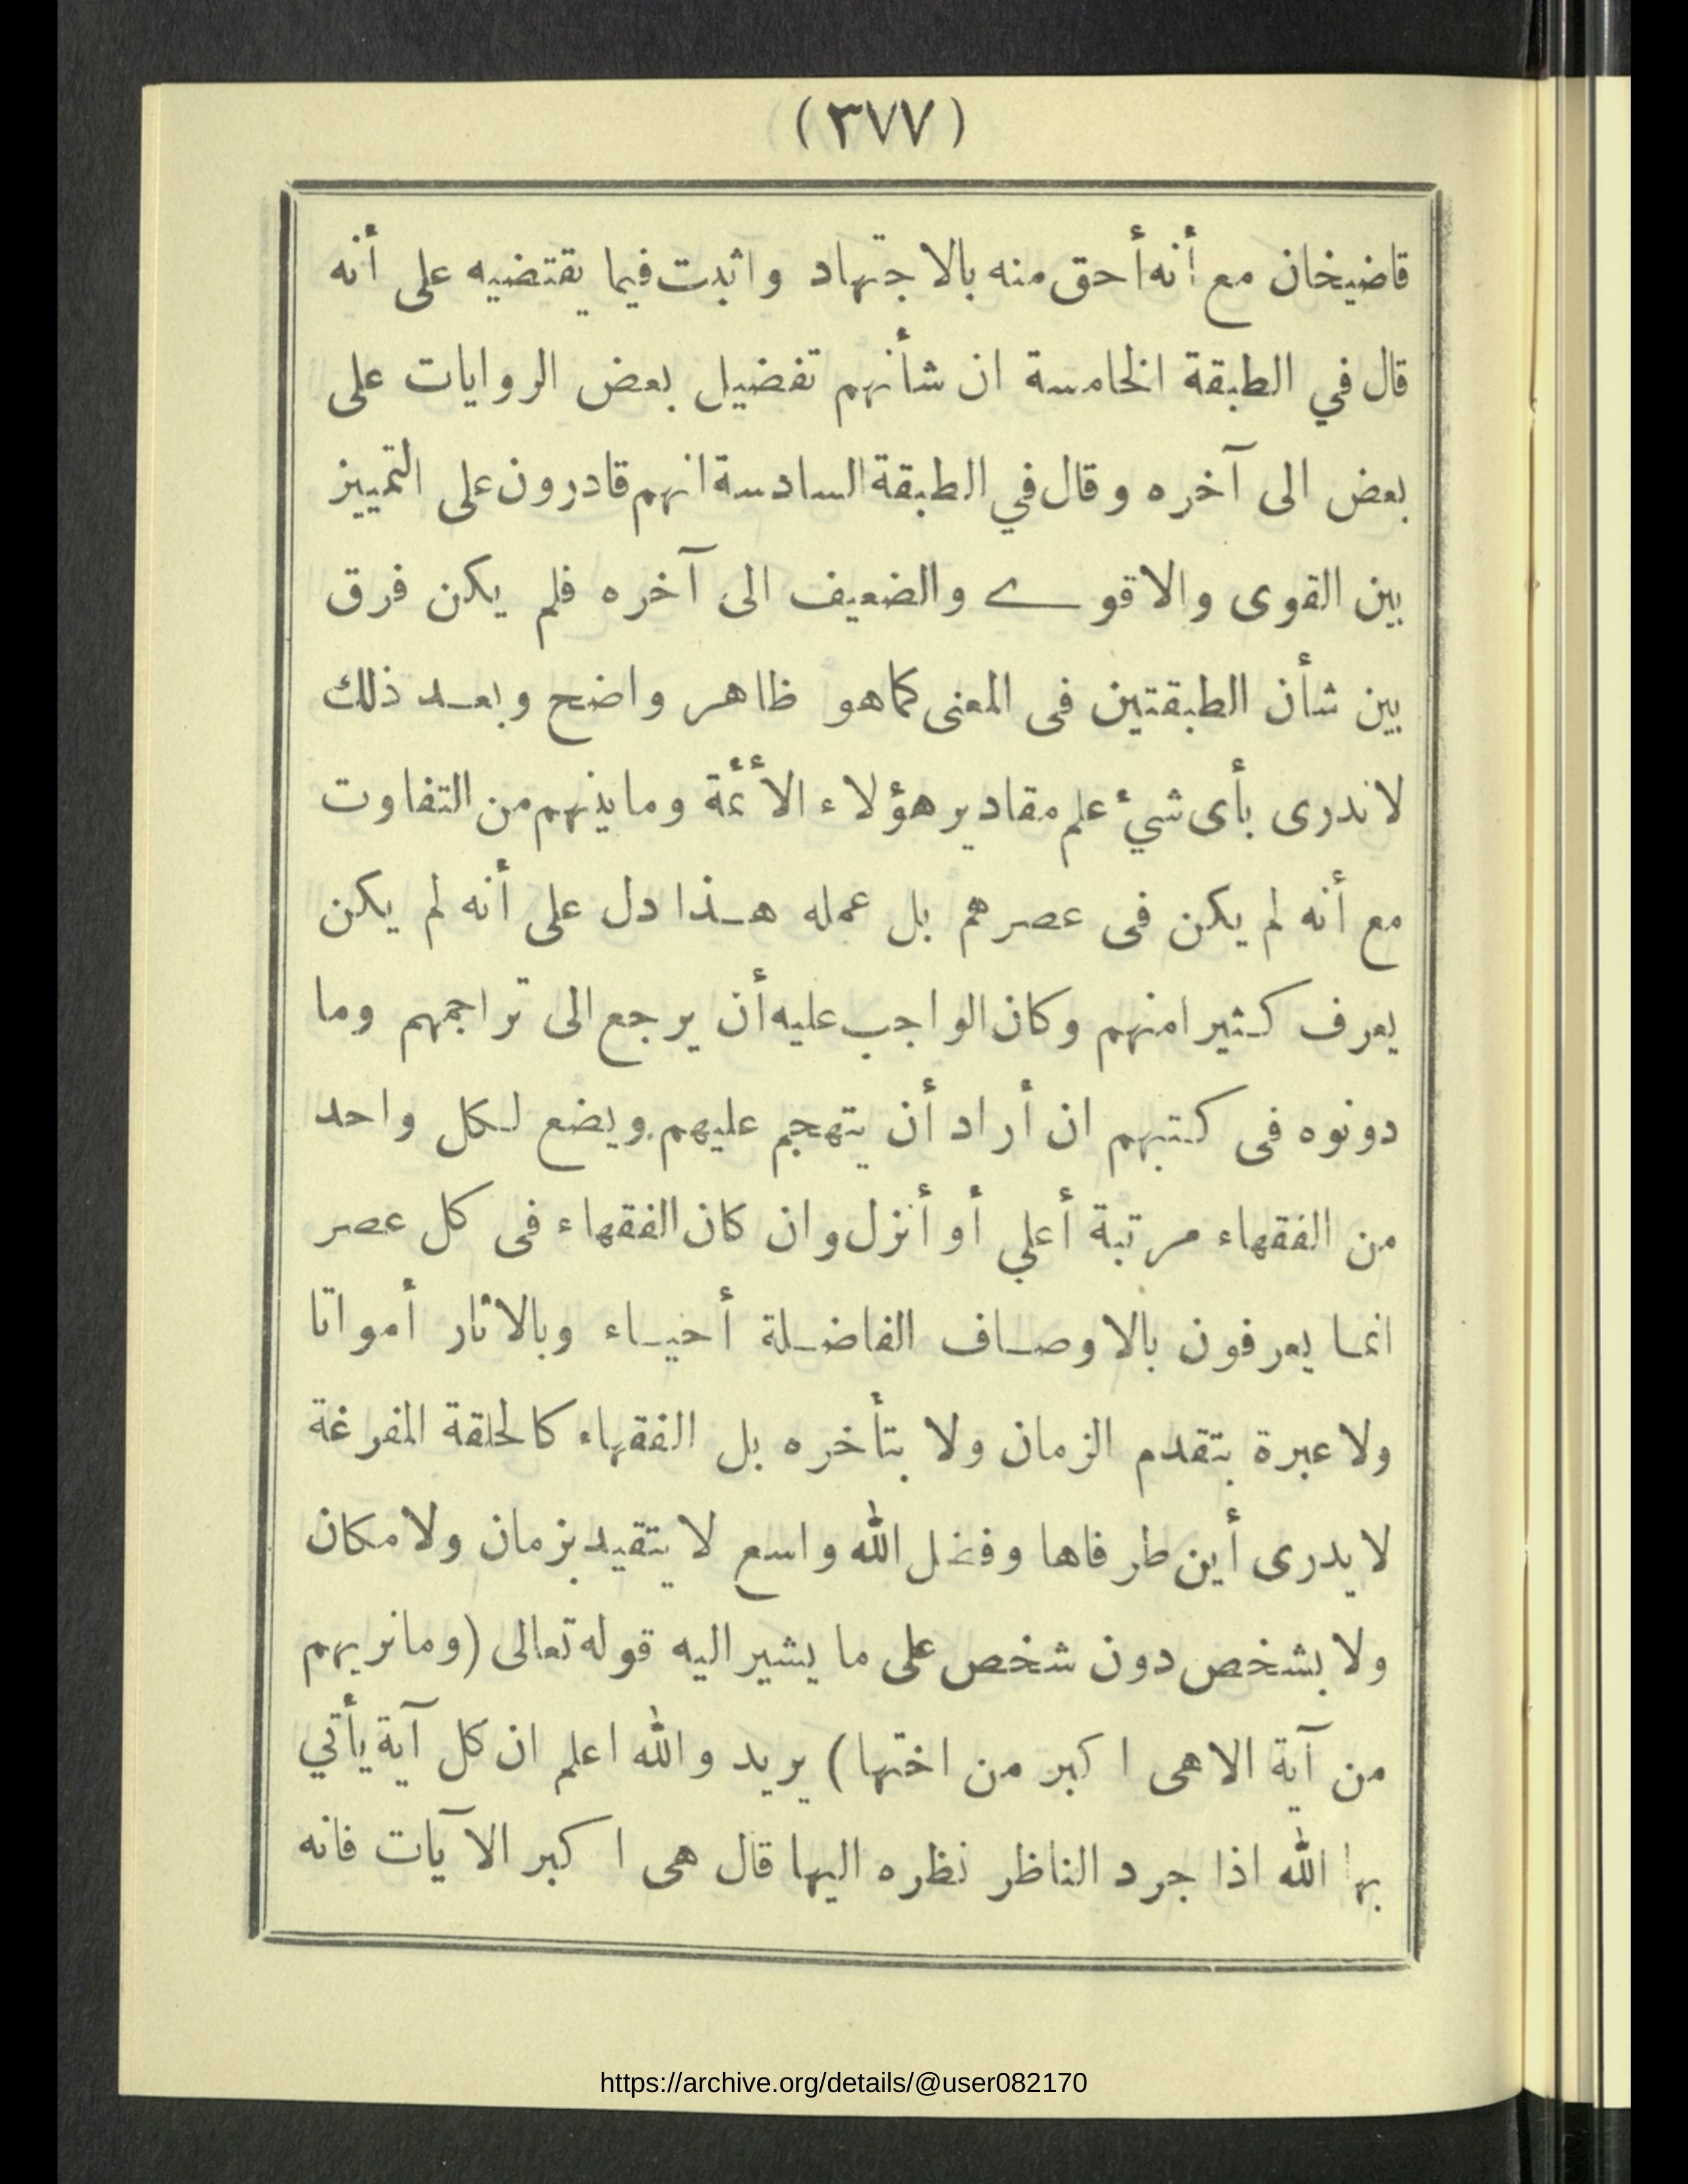 (٣٧٧)
قاضيخان مع أنه أحق منه بالاجتهاد واثبت فيما يقتضيه على أنه
قال في الطبقة الخامسة ان شأنهم تفضيل بعض الروايات على
بعض الى آخره وقال في الطبقة السادسة انهم قادرون على التمييز
بين القوى والاقوے والضعيف الى آخره فلم يكن فرق
بين شأن الطبقتين فى المعنى كما هو ظاهر واضح وبعد ذلك
لا ندرى بأى شيء علم مقادير هؤلاء الأئمة وما بينهم من التفاوت
مع أنه لم يكن فى عصرهم بل عمله هذا دل على أنه لم يكن
يعرف كثيرا منهم وكان الواجب عليه أن يرجع الى تراجمهم وما
دونوه فى كتبهم ان أراد أن يتهجم عليهم ويضع لكل واحد
من الفقهاء مرتبة أعلي أو أنزل وان كان الفقهاء فى كل عصر
انما يعرفون بالاوصاف الفاضلة أحياء وبالاثار أمواتا
ولا عبرة بتقدم الزمان ولا بتأخره بل الفقهاء كالحلقة المفرغة
لا يدرى أين طرفاها وفضل الله واسع لا يتقيد بزمان ولا مكان
ولا بشخص دون شخص على ما يشير اليه قوله تعالى (وما نريهم
من آية الا هى اكبر من اختها) يريد والله اعلم ان كل آية يأتي
بها الله اذا جرد الناظر نظره اليها قال هى اكبر الآيات فانه
https://archive.org/details/@user082170